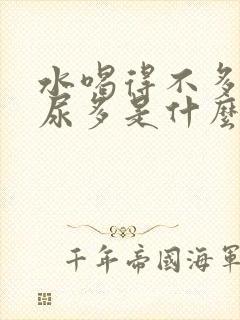 水喝得不多
尿多是什麼
千年帝國海軍